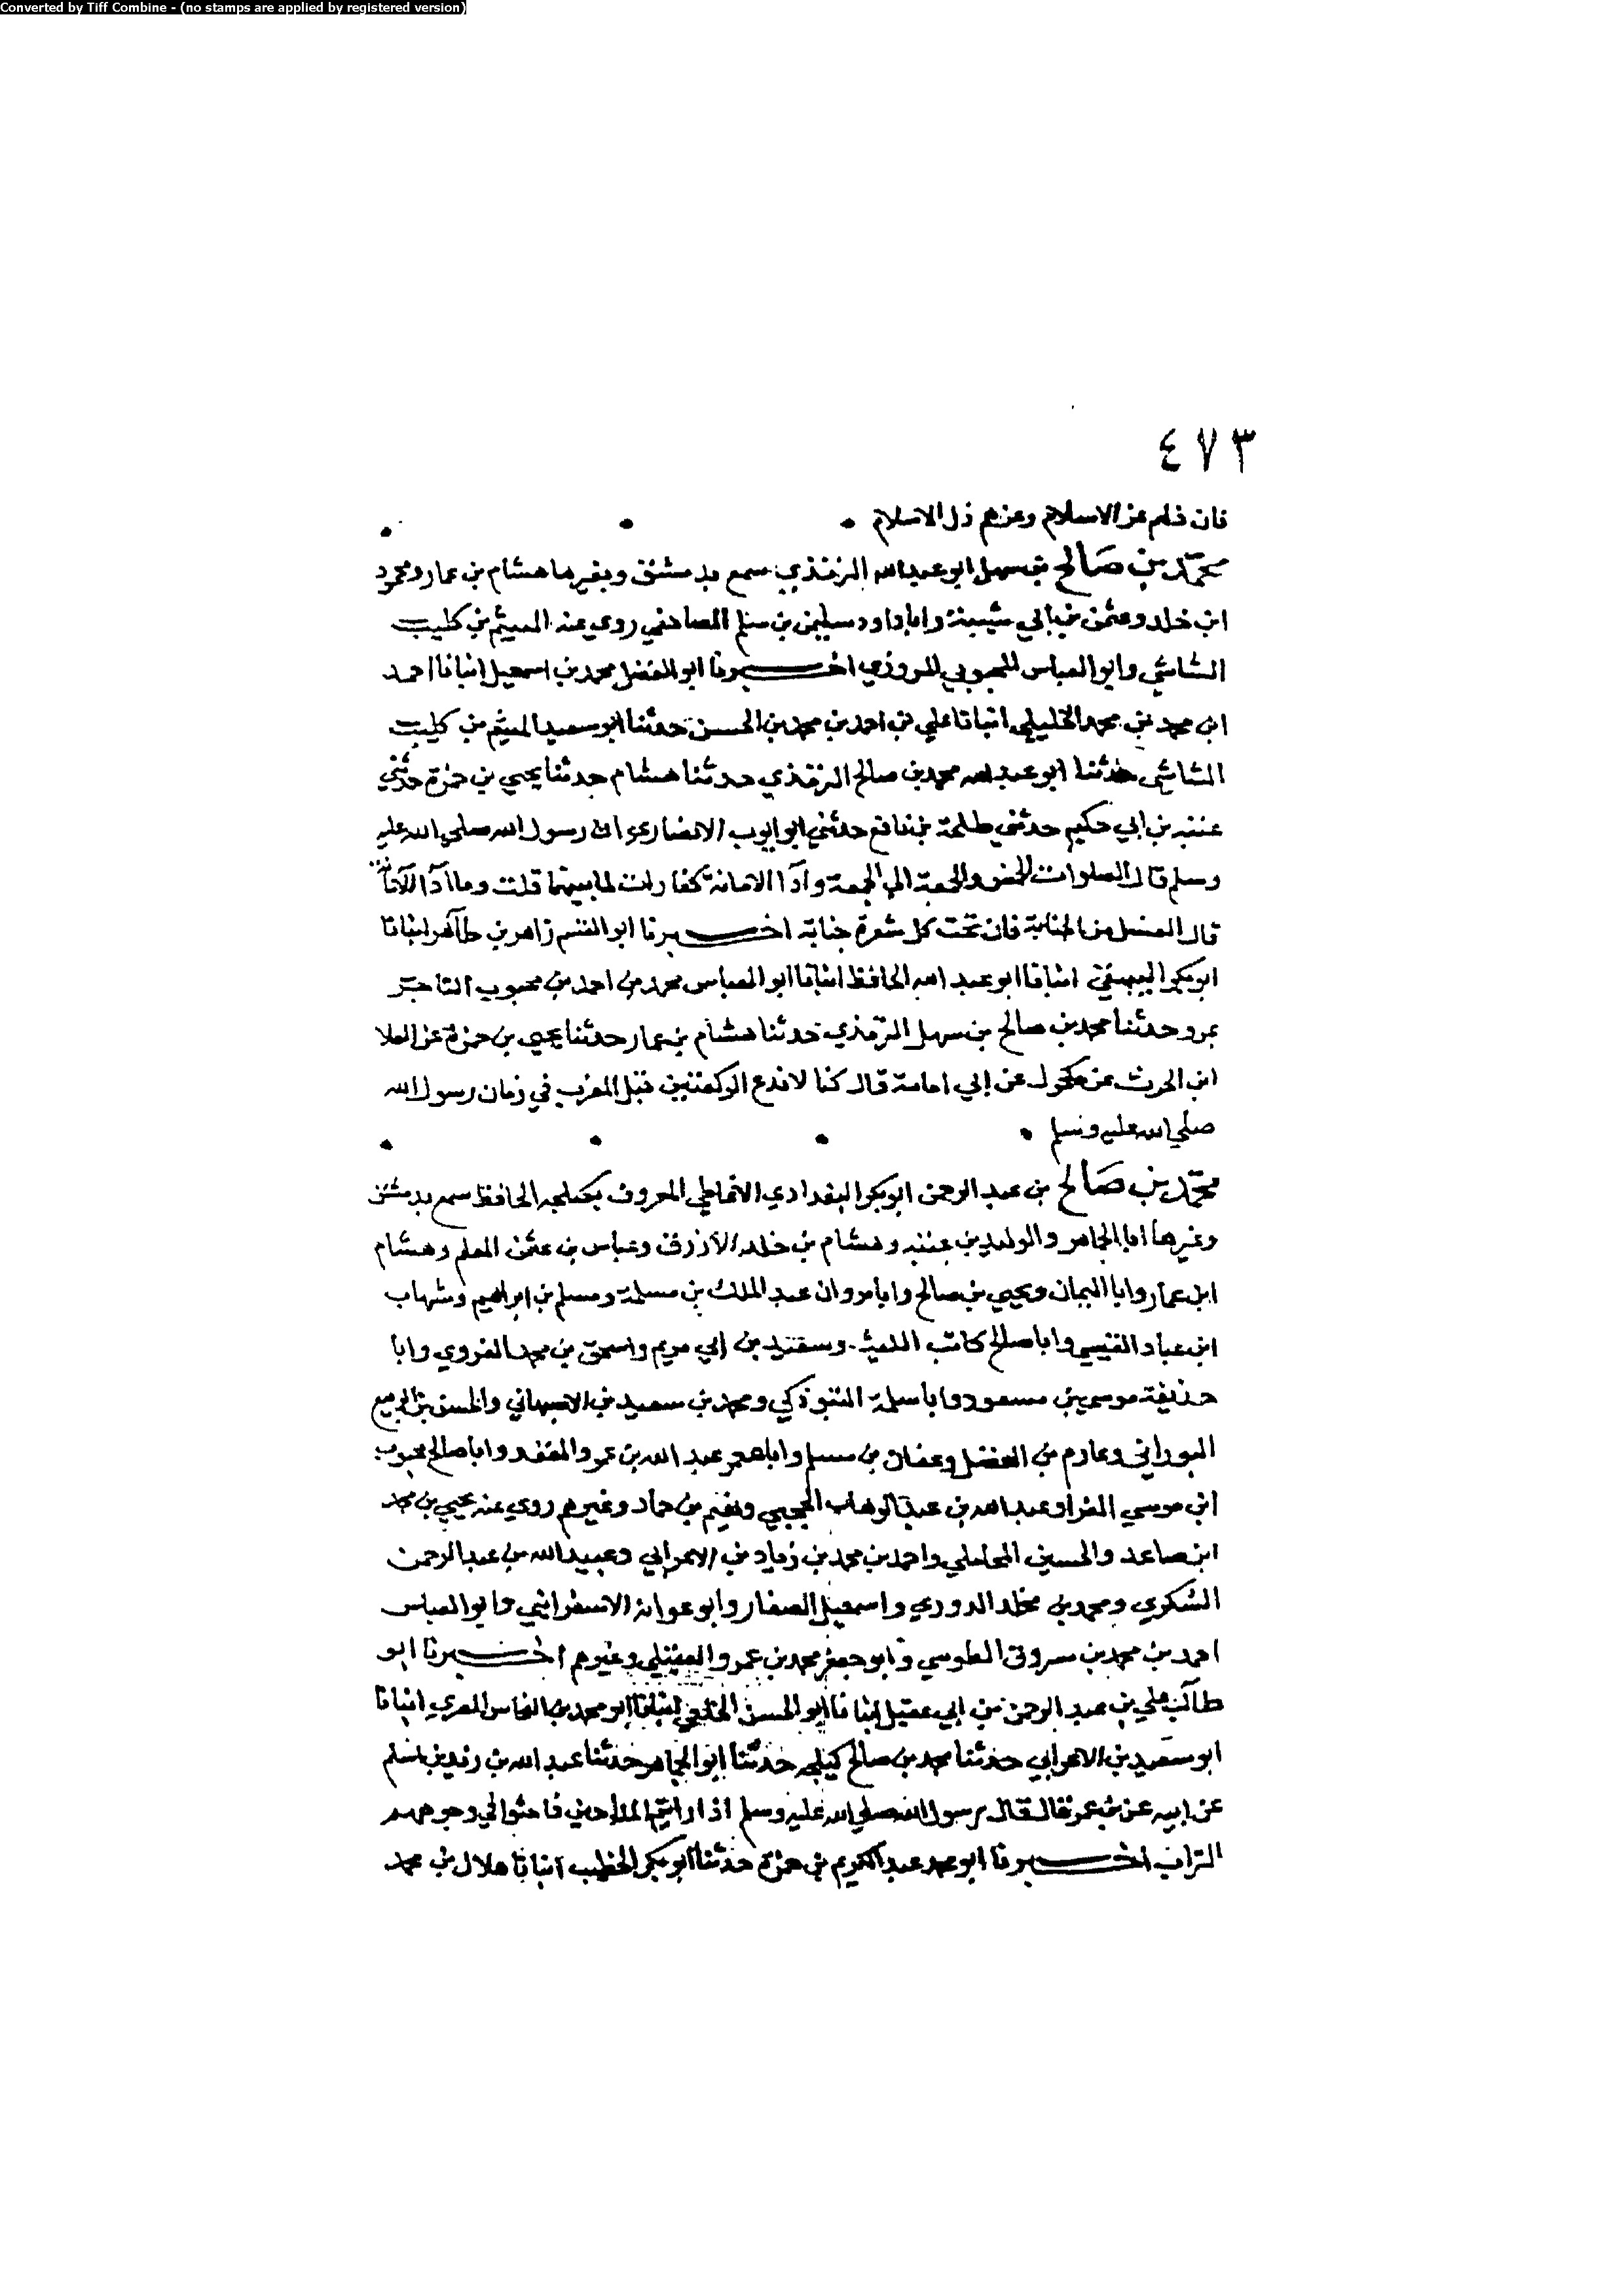 Converted by Tiff Combine - (no stamps are applied by registered version)
٤٧٣
فان ذلهم عز الاسلام وعزهم ذل الاسلام
محمد بن صالح بن سهل ابو عبد الله الترمذي سمع بدمشق وبغيرها هشام بن عمار ومحمود
ابن خلد وعثمن بن ابي شيبة وابا داود سليمن بن سلم المصاحفي روي عنه الهيثم بن كليب
الشاشي وابو العباس المحبوبي المروزي اخبرنا ابو الفضل محمد بن اسمعيل انبانا احمد
ابن محمد بن محمد الخليلي انبانا علي بن احمد بن محمد بن الحسن حدثنا ابو سعيد الهيثم بن كليب
الشاشي حدثنا ابو عبد الله محمد بن صالح الترمذي حدثنا هشام حدثنا يحيي بن حمزة حدثني
عتبه بن ابي حكيم حدثني طلحة بن نافع حدثني ابو ايوب الانصاري ان رسول الله صلي الله عليه
وسلم قال الصلوات الخمس والجمعة الي الجمعة وادا الامانة كفارات لما بينها قلت وما ادا الامانة
قال الغسل من الجنابة فان تحت كل شعرة جنابة اخبرنا ابو القسم زاهر بن طاهر انبانا
ابو بكر البيهقي انبانا ابو عبد الله الحافظ انبانا ابو العباس محمد بن احمد بن محبوب التاجر
بمرو حدثنا محمد بن صالح بن سهل الترمذي حدثنا هشام بن عمار حدثنا يحيي بن حمزة عن العلا
ابن الحرث عن مكحول عن ابي امامة قال كنا لا ندع الركعتين قبل المغرب في زمان رسول الله
صلي الله عليه وسلم
محمد بن صالح بن عبد الرحمن ابو بكر البغدادي الانماطي المعروف بكيلجه الحافظ سمع بدمشق
وغيرها ابا الجماهر والوليد بن عتبه وهشام بن خلد الازرق وعباس بن عثمن المعلم وهشام
ابن عمار وابا اليمان ويحيي بن صالح وابا مروان عبد الملك بن مسلمة ومسلم بن ابراهيم وشهاب
ابن عباد القيسي وابا صالح كاتب الليث وسعيد بن ابي مريم واسحق بن محمد الفروي وابا
حذيفة موسي بن مسعود وابا سلمة التبوذكي ومحمد بن سعيد بن الاصبهاني والحسن بن الربيع
البوراني وعارم بن الفضل وعفان بن مسلم وابا معمر عبد الله بن عمرو المقعد وابا صالح محبوب
ابن موسي الفرا وعبد الله بن عبد الوهاب الحجبي ونعيم بن حماد وغيرهم روي عنه يحيي بن محمد
ابن صاعد والحسين المحاملي واحمد بن محمد بن زياد بن الاعرابي وعبيد الله بن عبد الرحمن
السكري ومحمد بن مخلد الدوري واسمعيل الصفار وابو عوانة الاسفرايني وابو العباس
احمد بن محمد بن مسروق الطوسي وابو جعفر محمد بن عمرو العقيلي وغيرهم اخبرنا ابو
طالب علي بن عبد الرحمن بن ابي عقيل انبانا ابو الحسن الخلعي انبانا ابو محمد بن النحاس المصري انبانا
ابو سعيد بن الاعرابي حدثنا محمد بن صالح كيلجه حدثنا ابو الجماهر حدثنا عبد الله بن زيد بن اسلم
عن ابيه عن بن عمر قال قال رسول الله صلي الله عليه وسلم اذا رايتم المداحين فاحثوا في وجوههم
التراب اخبرنا ابو محمد عبد الكريم بن حمزة حدثنا ابو بكر الخطيب انبانا هلال بن محمد